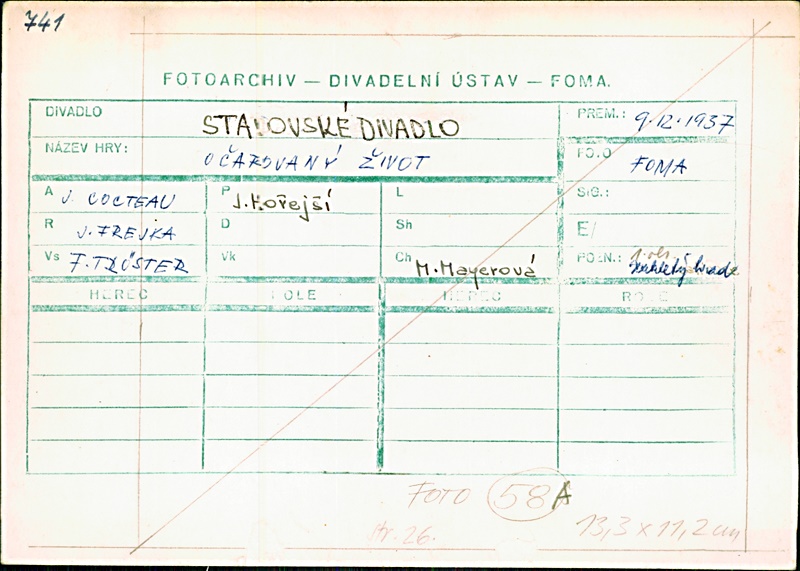 741
FOTOARCHIV — DIVADELNÍ ÚSTAV — FOMA.
DIVADLO STAVOVSKÉ DIVADLO PREM.: 9.12.1937
NÁZEV HRY: OČAROVANÝ ŽIVOT FOTO FOMA
A J. COCTEAU P J. Hořejší L SIG.:
R J. FREJKA D Sh E/
Vs F. TRÖSTER Vk Ch M. Mayerová POZN.:
HEREC ROLE HEREC ROLE
FOTO 58A
13,3 x 11,2 cm